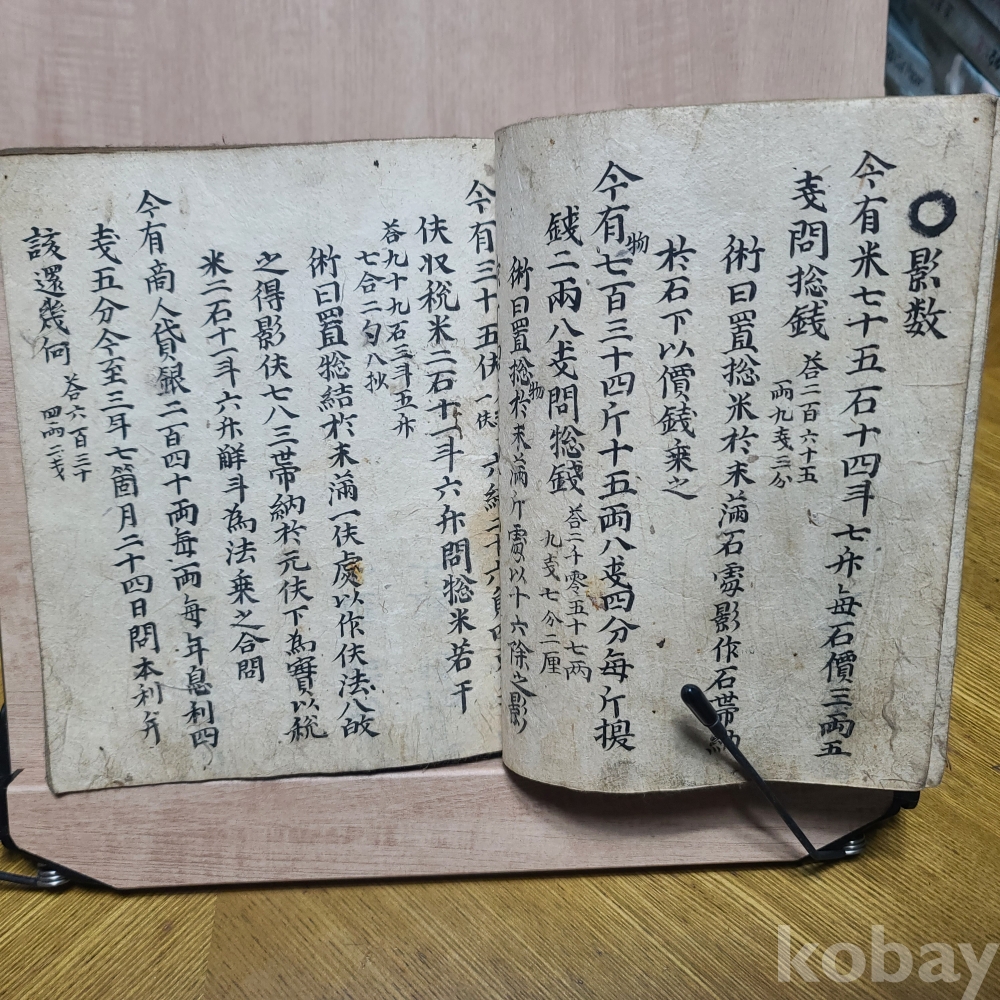 影数
今有米七十五石十四斗七升每石價三兩五
戔問摠錢
答二百六十五
兩九戔三分
術曰置摠米於末滿石處影作石帶納
於石下以價錢乘之
今有物七百三十四斤十五兩八戔四分每斤換
錢二兩八戔問摠錢
答二千零五十七兩
九戔七分二厘
術曰置摠物於末滿斤處以十六除之影
今有三十五伕
一伕
伕収稅米二石十一斗六升問摠米若干
答九十九石三斗五升
七合二勺八抄
術曰置摠結於末滿一伕處以作伕法八故
之得影伕七八三帶納於元伕下為實以稅
米二石十一斗六升觧斗為法乘之合問
今有商人貸銀二百四十兩每兩每年息利四
戔五分今至三年七箇月二十四日問本利并
該還幾何
答六百三十
四兩二戔
kobay